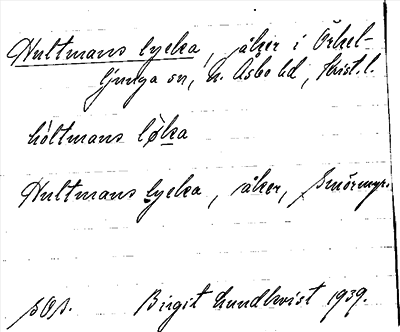 Hultmans lycka, åker i Örkel-
ljunga sn, N. Åsbo hd, Krist. l.
hòltmans løka
Hultmans lycka, åker, Smörmyr.
sOs. Birgit Lundkvist 1939.